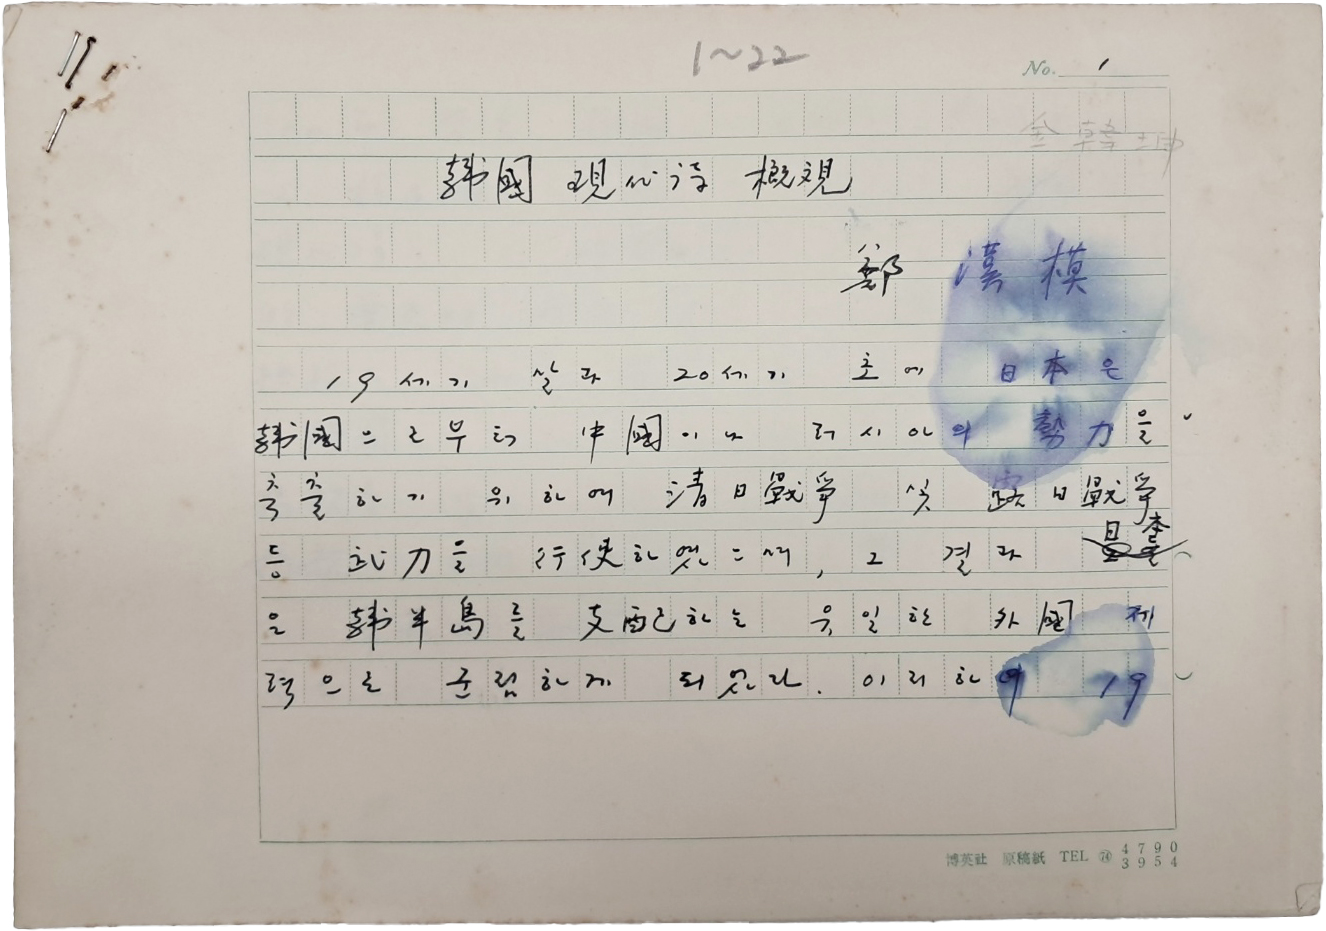 1~22
No. 1
韓國 現代詩 概観
鄭 漢 模
19세기 말과 20세기 초에 日本은
韓國으로부터 中國이나 러시아의 勢力을
축출하기 위하여 清日戰爭 및 露日戰爭
등 武力을 行使하였으며, 그 결과 日本
은 韓半島를 支配하는 유일한 外國 세
력으로 군림하게 되었다. 이리하여 19
博英社 原稿紙 TEL 74 4790
3954